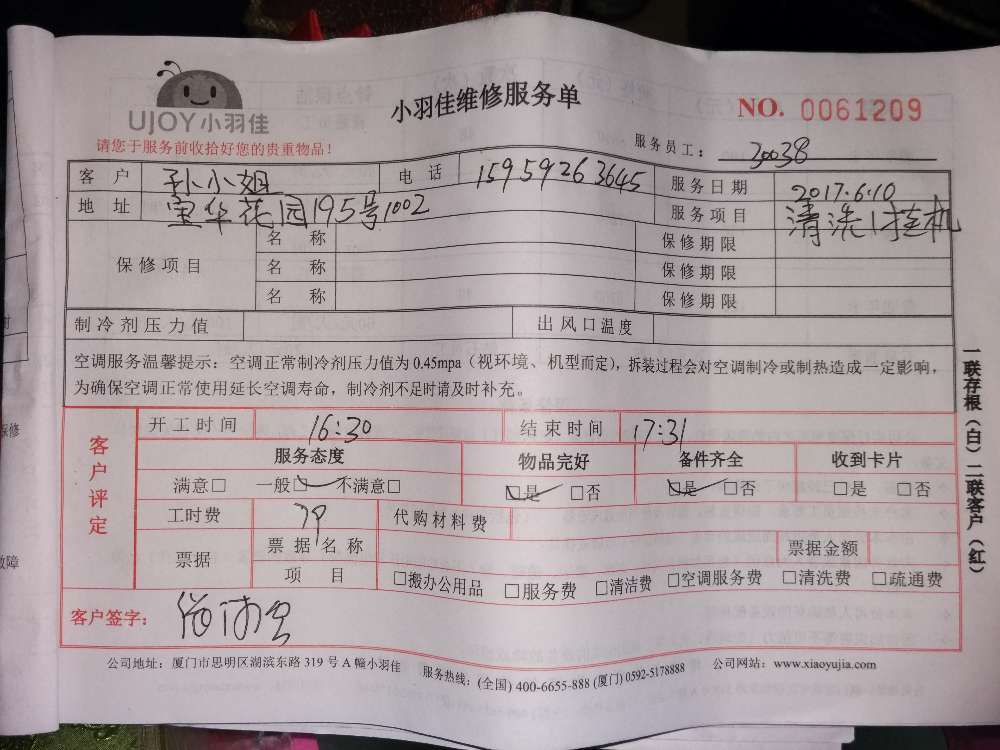 UJOY小羽佳
小羽佳维修服务单
NO. 0061209
请您于服务前收拾好您的贵重物品!
服务员工: 30038
客户 孙小姐 电话 15959263645 服务日期 2017.6.10
地址 宝华花园195号1002 服务项目 清洗1挂机
保修项目 名称 保修期限
名称 保修期限
名称 保修期限
制冷剂压力值 出风口温度
空调服务温馨提示:空调正常制冷剂压力值为0.45mpa(视环境、机型而定),拆装过程会对空调制冷或制热造成一定影响,
为确保空调正常使用延长空调寿命,制冷剂不足时请及时补充。
客户评定
开工时间 16:30 结束时间 17:31
服务态度 物品完好 备件齐全 收到卡片
满意□ 一般□ 不满意□ □是 □否 □是 □否 □是 □否
工时费 79 代购材料费
票据 票据名称 票据金额
项目 □搬办公用品 □服务费 □清洁费 □空调服务费 □清洗费 □疏通费
客户签字:
公司地址:厦门市思明区湖滨东路319号A幢小羽佳 服务热线:(全国) 400-6655-888 (厦门) 0592-5178888 公司网站:www.xiaoyujia.com
一联存根(白)二联客户(红)